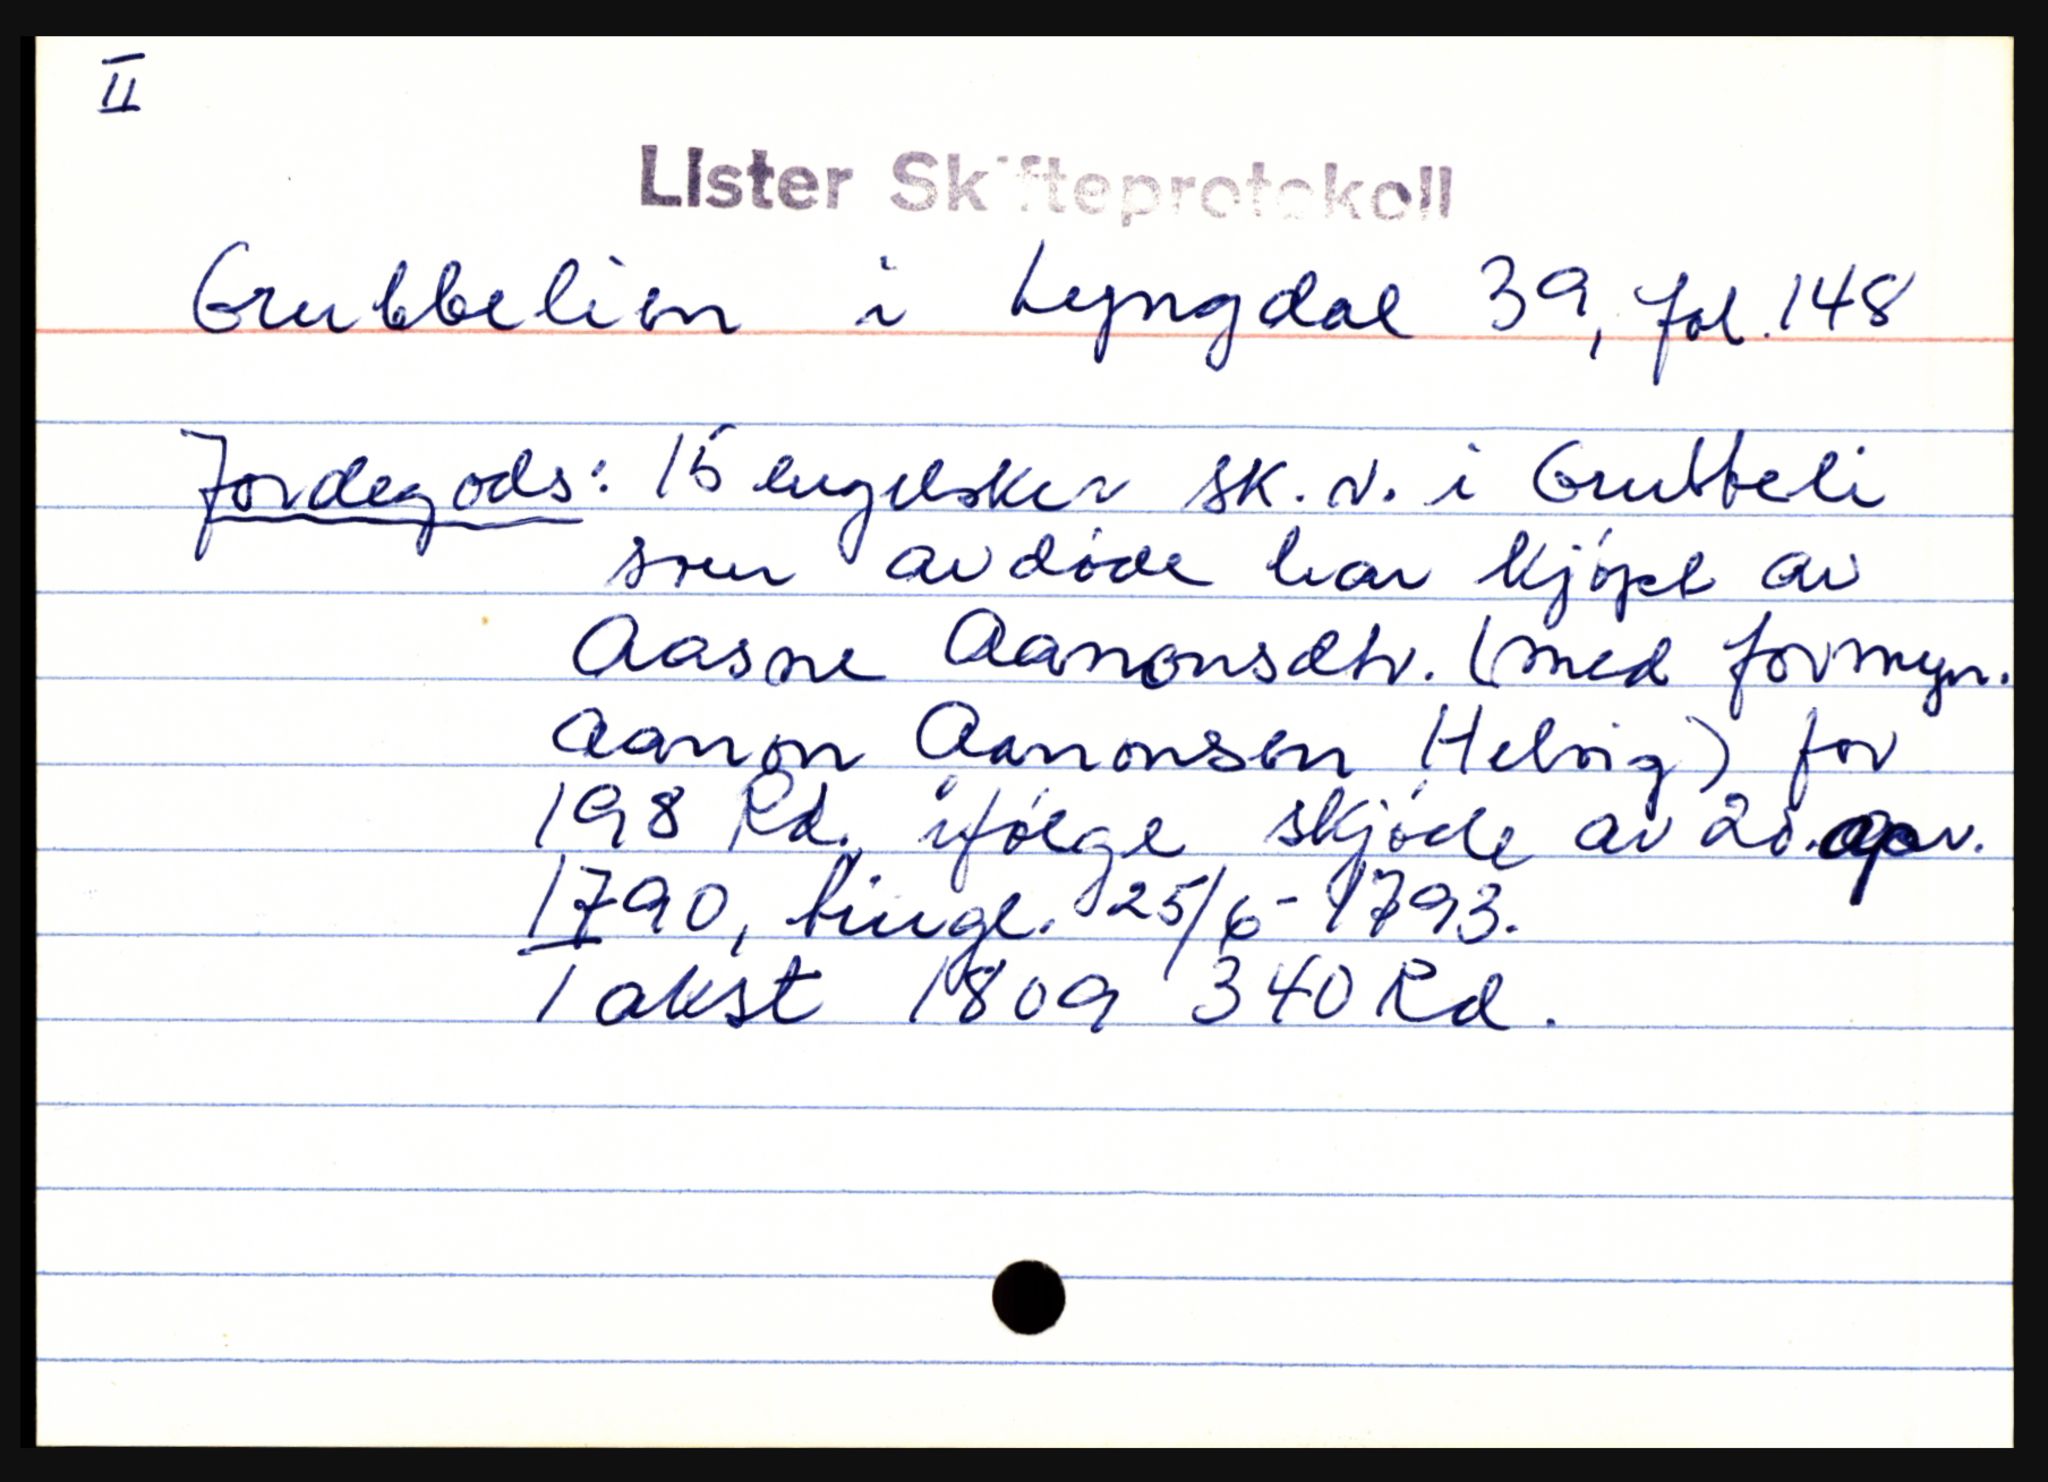 II
Lister Skifteprotokoll
Grubbelien i Lyngdal 39, fol. 148
Jordegods: 15 engelsker sk. v. i Grubbeli
som avdøde har kjøpt av
Aasne Aanonsdtr. (med formyn.
Aanon Aanonsen Helvig) for
198 Rd. ifølge skjøde av 20. apr.
1790, tingl. 25/6-1793.
Takst 1809 340 Rd.